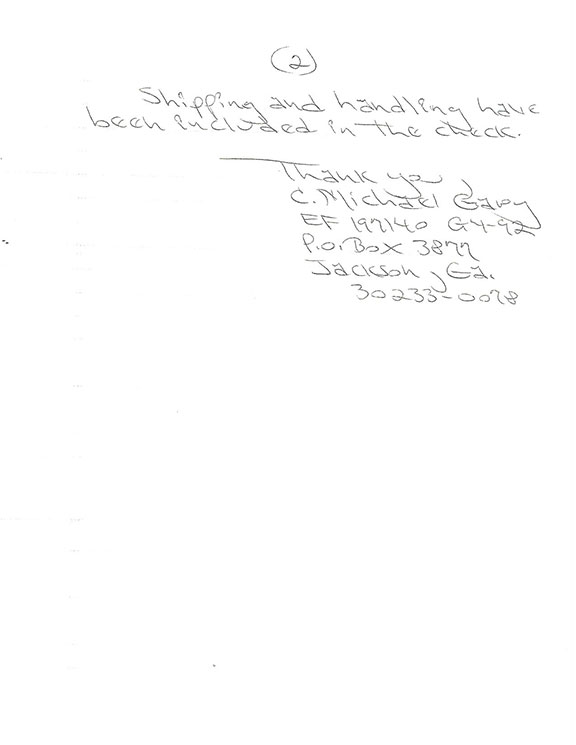 (2)
Shipping and handling have
been included in the check.
Thank you,
C. Michael Gary
EF 197140 G4-92
P.O. Box 3877
Jackson, Ga.
30233-0078